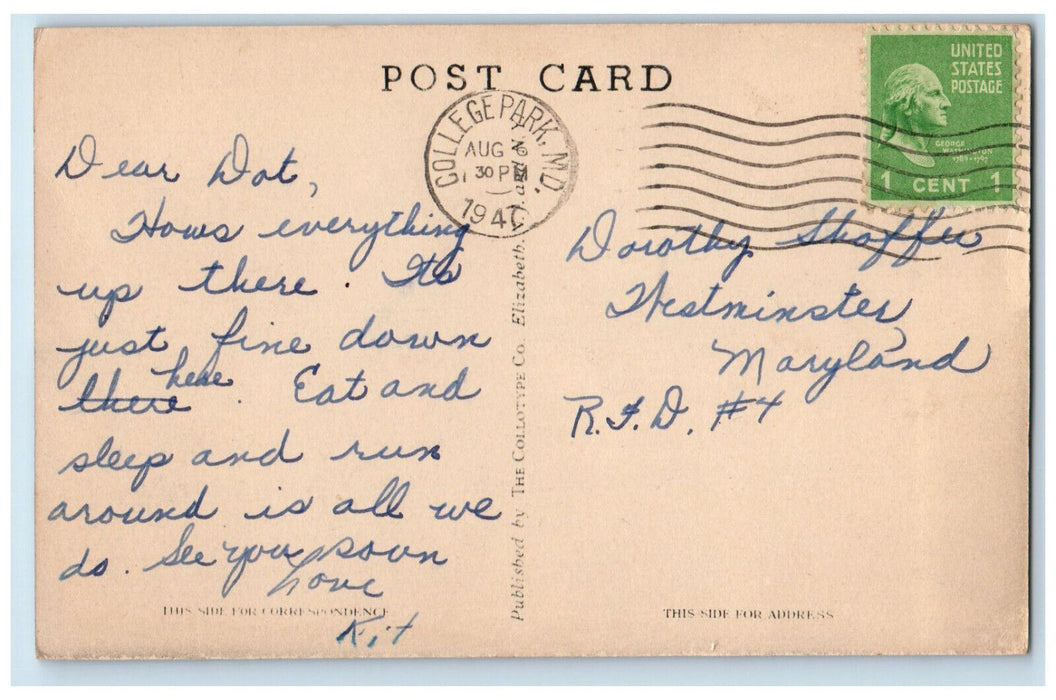 POST CARD
UNITED
STATES
POSTAGE
GEORGE
WASHINGTON
1789-1797
1 CENT 1
COLLEGE PARK, MD.
AUG 6
30 PM
1947
Dear Dot,
Hows everything
up there. Its
just fine down
~~there~~ here. Eat and
sleep and run
around is all we
do. See you soon
Love
Kit
THIS SIDE FOR CORRESPONDENCE
Published by THE COLLOTYPE CO. Elizabeth, and N.Y.
Dorothy Shaffer
Westminster
Maryland
R.F.D. #4
THIS SIDE FOR ADDRESS